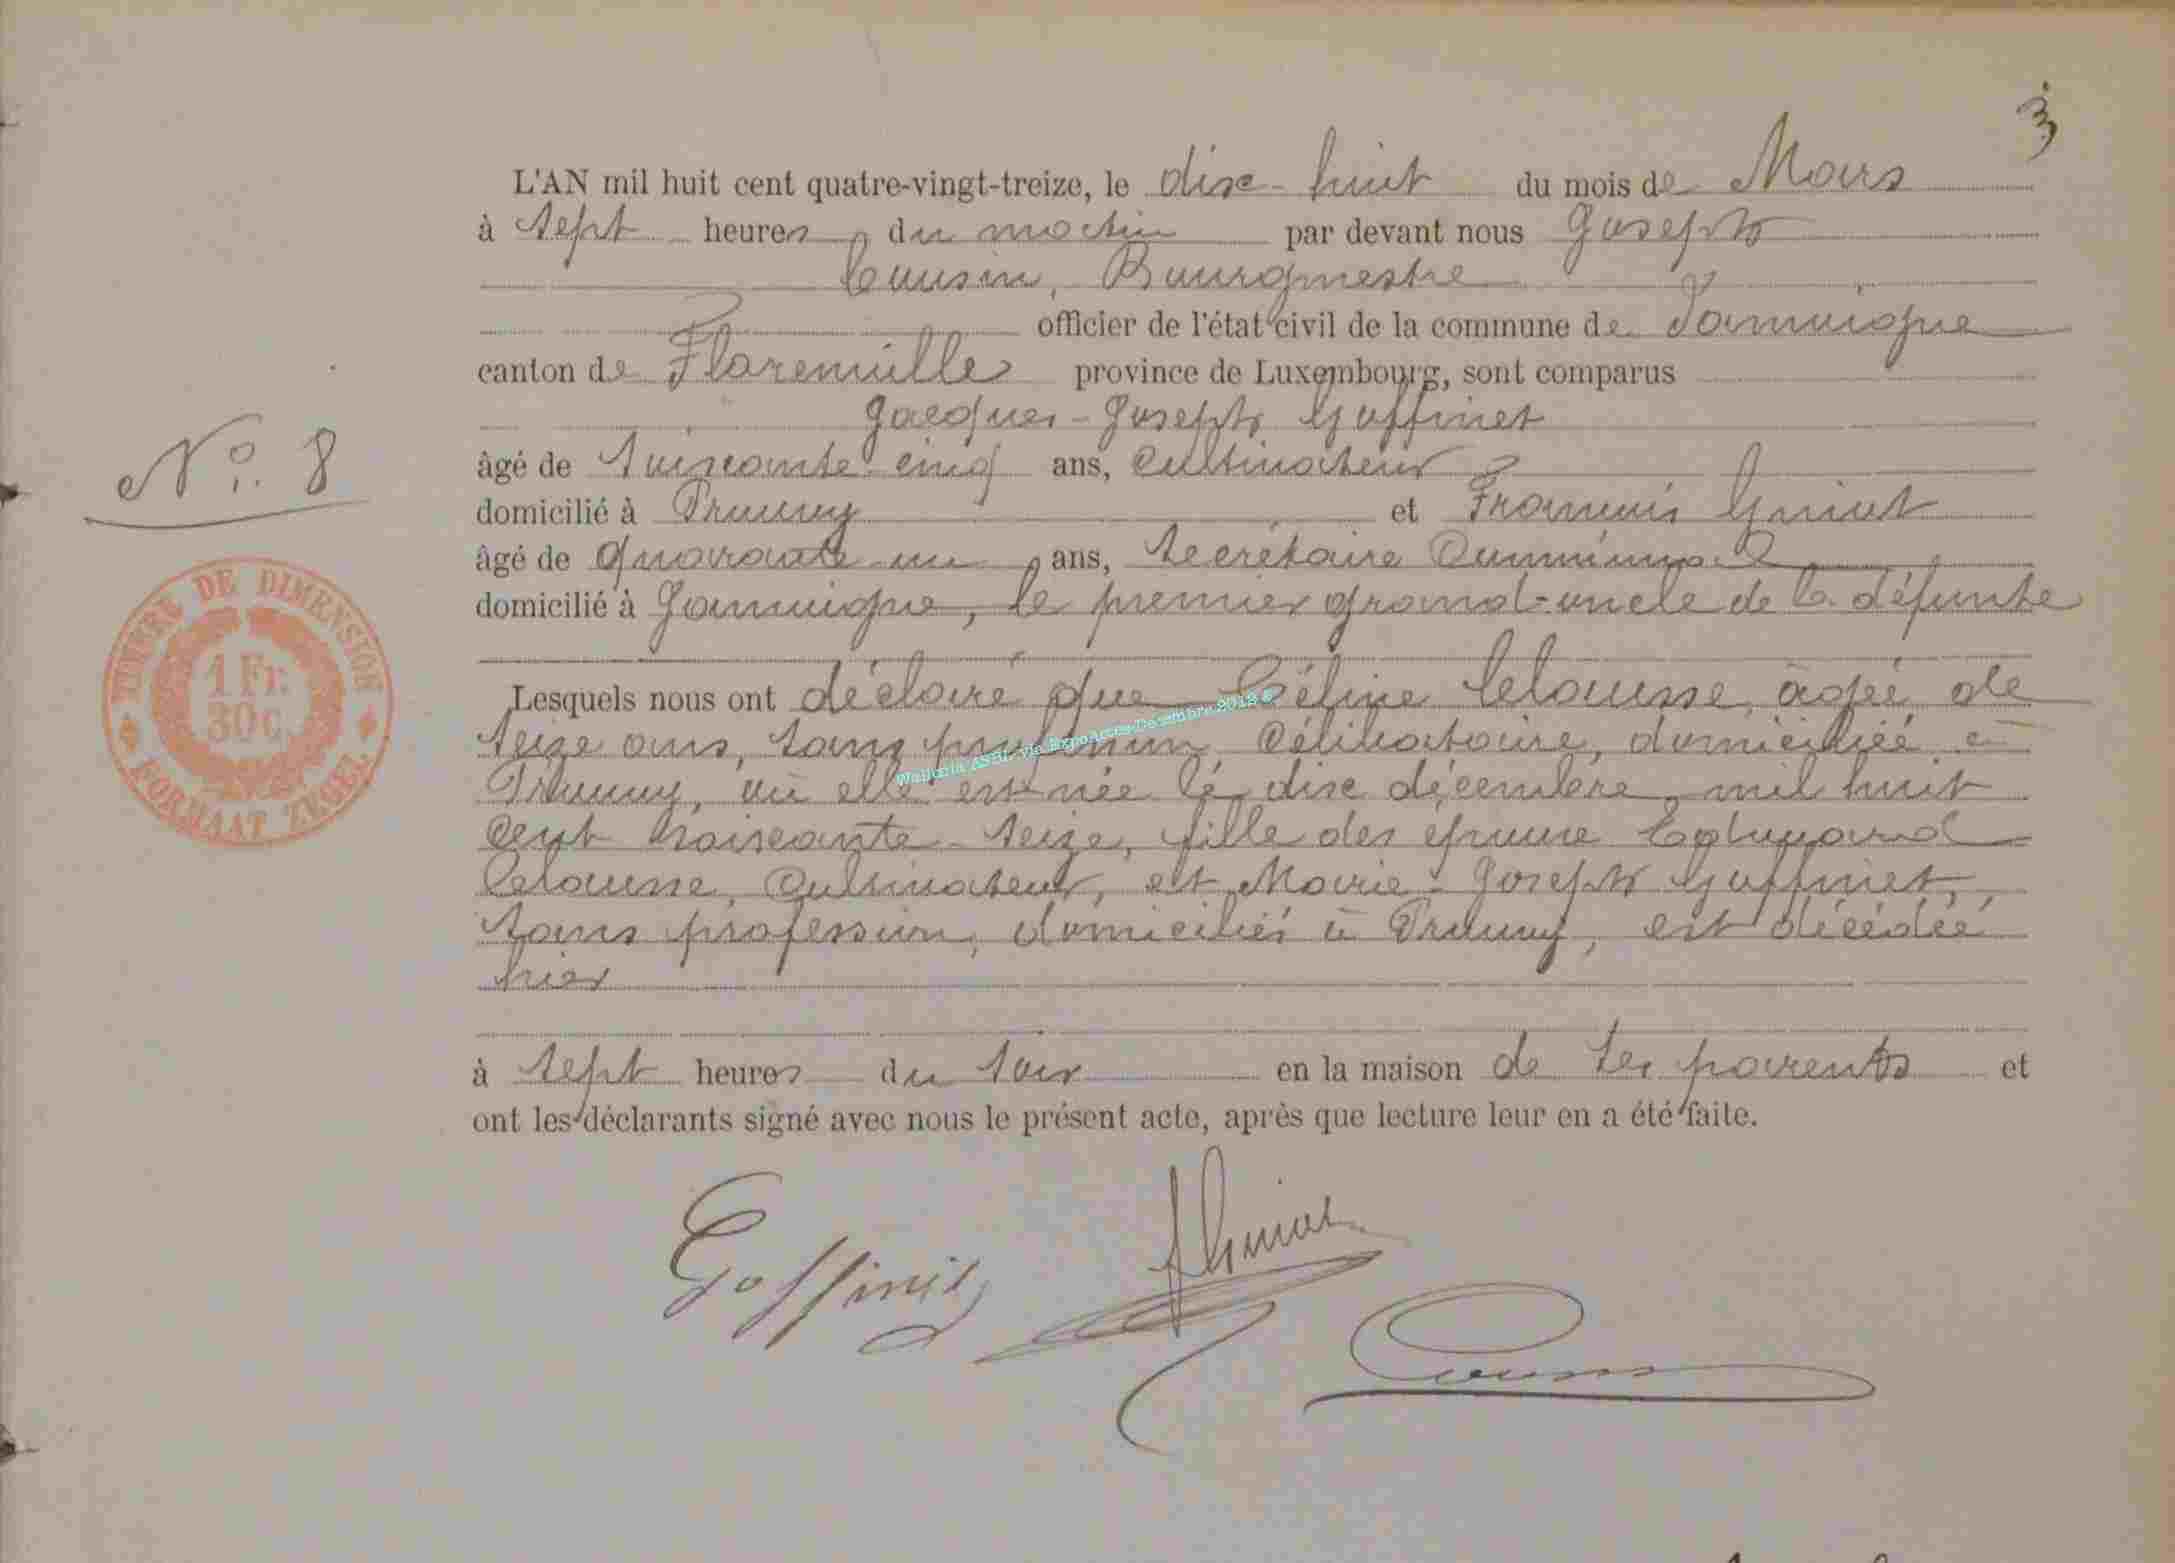 3
L'AN mil huit cent quatre-vingt-treize, le dix-huit du mois de Mars
à sept heures du matin par devant nous Joseph
Cousin, Bourgmestre
officier de l'état civil de la commune de Jamoigne
canton de Florenville province de Luxembourg, sont comparus
Jacques-Joseph Goffinet
âgé de soixante cinq ans, cultivateur
domicilié à Prouvy et François Guiot
âgé de quarante-un ans, secrétaire Communal
domicilié à Jamoigne, le premier grand-oncle de la défunte
Lesquels nous ont déclaré que Céline Clausse, âgée de
seize ans, sans profession, Célibataire, domiciliée à
Prouvy, où elle est née le dix décembre, mil huit
cent soixante-seize, fille des époux Edouard
Clausse, Cultivateur, et Marie-Joseph Goffinet,
sans profession, domiciliés à Prouvy, est décédée
hier
à sept heures du soir en la maison de ses parents et
ont les déclarants signé avec nous le présent acte, après que lecture leur en a été faite.
N°. 8
TIMBRE DE DIMENSION
1 Fr.
30 c.
FORMAAT ZEGEL
Goffinet
F Guiot
Cousin